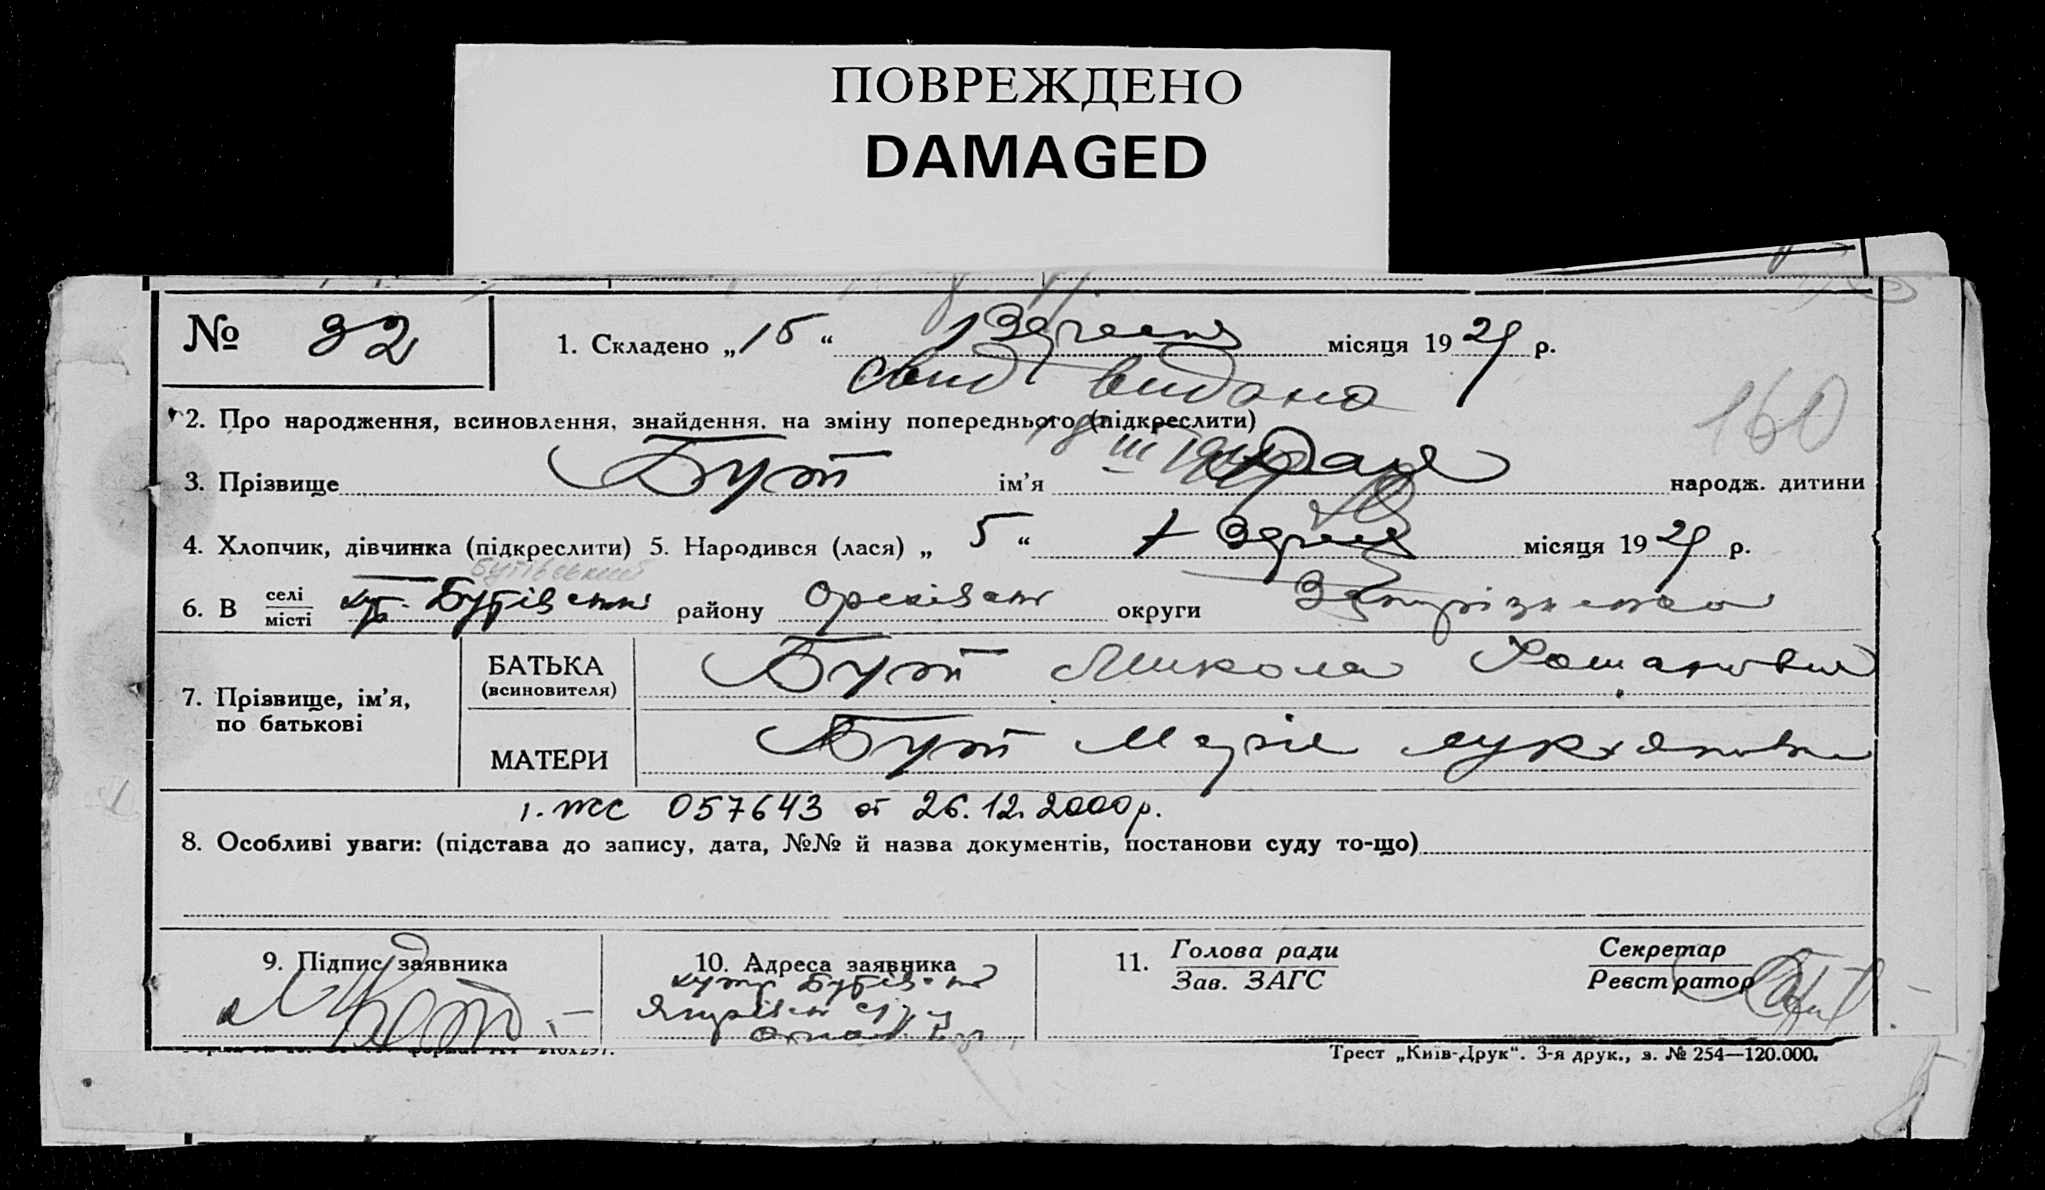 ПОВРЕЖДЕНО
DAMAGED
№ 32
1. Складено „15“ Вересня місяця 1929 р.
свид видано
160
2. Про народження, всиновлення, знайдення, на зміну попереднього (підкреслити)
18 III
3. Прізвище Бут ім'я народж. дитини
4. Хлопчик, дівчинка (підкреслити) 5. Народився (лася) „5“ Вересня місяця 1929 р.
Бутівський
6. В селі/місті хут. Бутівський району Оріхівськ округи Запорізької
7. Прізвище, ім'я, по батькові
БАТЬКА (всиновителя) Бут Микола Романович
МАТЕРИ Бут Марія Лукянівна
1. ЖС 057643 от 26.12.2000р.
8. Особливі уваги: (підстава до запису, дата, №№ й назва документів, постанови суду то-що)
9. Підпис заявника
10. Адреса заявника
хутір Бутівськ
11. Голова ради Секретар
Зав. ЗАГС Реєстратор
Трест „Київ-Друк“. 3-я друк., з. № 254—120.000.